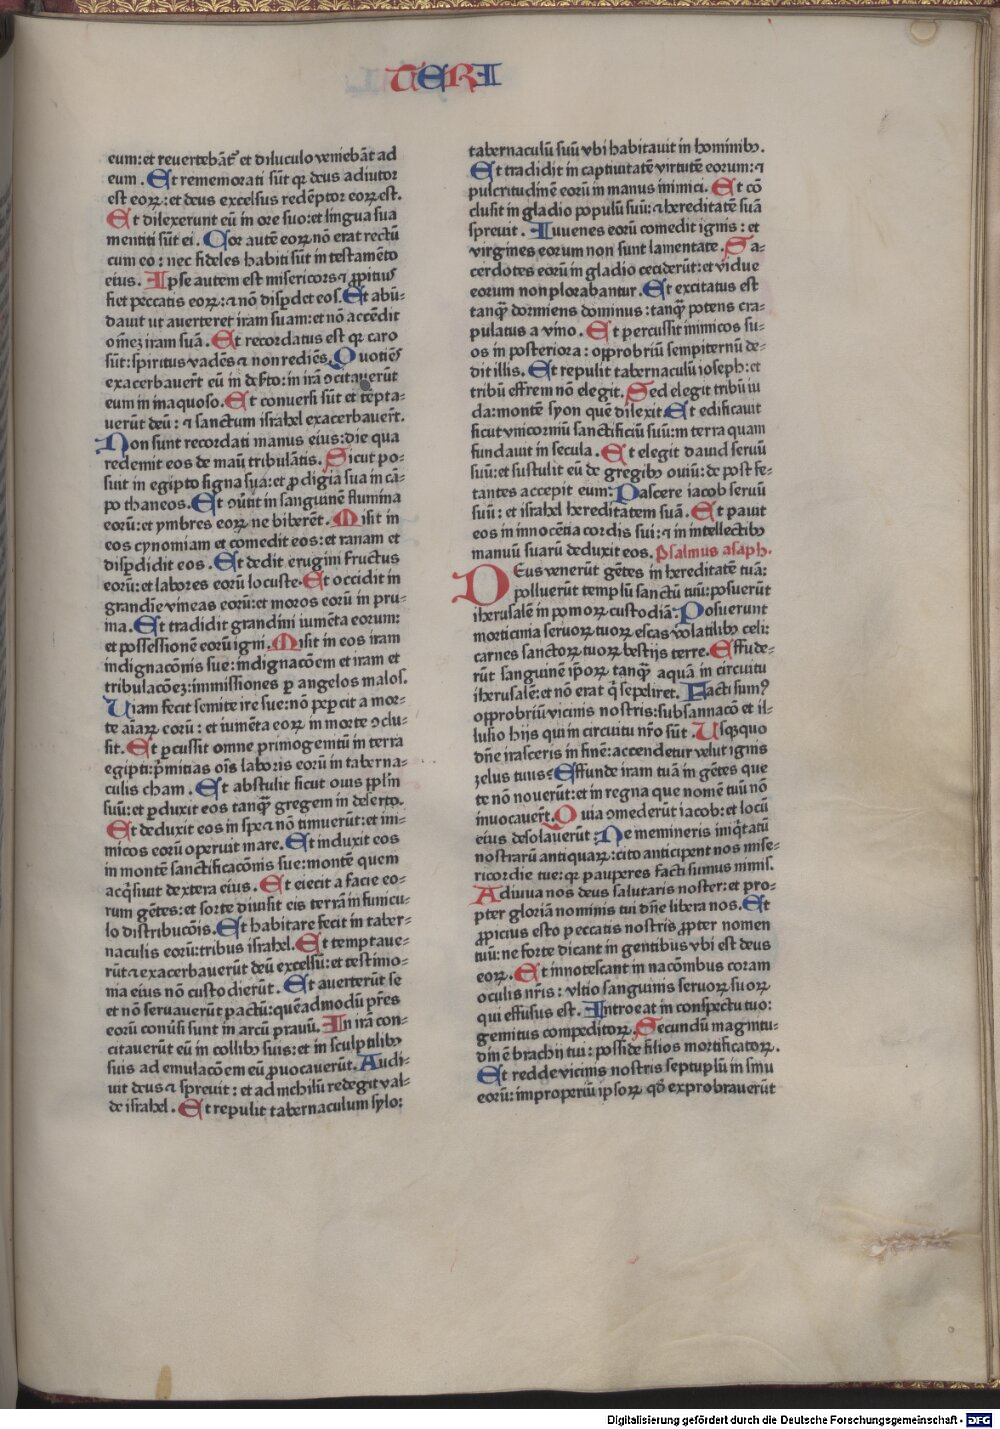 VERI
eum: et reuertebãt᷑ et diluculo veniebãt ad
eum. Et rememorati sũt qꝛ deus adiutor
est eoꝝ: et deus excelsus redẽptor eoꝝ est.
Et dilexerunt eũ in ore suo: et lingua sua
mentiti sũt ei. Cor autẽ eoꝝ nõ erat rectũ
cum eo: nec fideles habiti sũt in testamẽto
eius. Ipse autem est misericors ⁊ ꝓpitius
fiet peccatis eoꝝ: ⁊ nõ disꝑdet eos. Et abũ-
dauit ut auerteret iram suam: et nõ accẽdit
om̃eʒ iram suã. Et recordatus est qꝛ caro
sũt: spiritus vadẽs ⁊ non rediẽs. Quotiẽs
exacerbauert̃ eũ in deẞto: in irã ↄcitauerũt
eum in inaquoso. Et conuersi sũt et tẽpta-
uerũt deũ: ⁊ sanctum israhel exacerbauert̃.
Non sunt recordati manus eius: die qua
redemit eos de manũ tribulãtis. Sicut po-
suit in egipto signa sua: et ꝓdigia sua in cã-
po thaneos. Et ↄũtit in sanguinẽ flumina
eorũ: et ymbres eoꝝ ne biberẽt. Misit in
eos cynomiam et comedit eos: et ranam et
disꝑdidit eos. Et dedit erugini fructus
eorũ: et labores eorũ locuste. Et occidit in
grandĩe vineas eorũ: et moros eorũ in pru-
ina. Et tradidit grandini iumẽta eorum:
et possessionẽ eorũ igni. Misit in eos iram
indignacõnis sue: indignacõem et iram et
tribulacõeʒ: immissiones ꝑ angelos malos.
Uiam fecit semite ire sue: nõ peꝑcit a mor-
te aĩaꝝ eorũ: et iumẽta eoꝝ in morte ↄclu-
sit. Et ꝑcussit omne primogenitũ in terra
egipti: p̃mitias oĩs laboris eorũ in taberna-
culis cham. Et abstulit sicut ouis ꝓpl̃m
suũ: et ꝑduxit eos tanqᷓ gregem in deserto.
Et deduxit eos in spe ⁊ nõ timuerũt: et ini-
micos eorũ operuit mare. Et induxit eos
in montẽ sanctificacõnis sue: montẽ quem
acq̃siuit dextera eius. Et eiecit a facie eo-
rum gẽtes: et sorte diuisit eis terrã in funicu-
lo distribucõis. Et habitare fecit in taber-
naculis eorũ: tribus israhel. Et temptaue-
rũt ⁊ exacerbauerũt deũ excelsũ: et testimo-
nia eius nõ custodierũt. Et auerterũt se
et nõ seruauerũt pactũ: quẽadmodũ pr̃es
eorũ conũsi sunt in arcũ prauũ. In irã con-
citauerũt eũ in collibꝫ suis: et in sculptilibꝫ
suis ad emulacõem eũ ꝓuocauerũt. Audi-
uit deus ⁊ spreuit: et ad nichilũ redegit val-
de israhel. Et repulit tabernaculum sylo:
tabernaculũ suũ vbi habitauit in hominibꝫ.
Et tradidit in captiuitatẽ virtutẽ eorum: ⁊
pulcritudinẽ eorũ in manus inimici. Et cõ
clusit in gladio populũ suũ: ⁊ hereditatẽ suã
spreuit. Iuuenes eorũ comedit ignis: et
virgines eorum non sunt lamentate. Sa-
cerdotes eorũ in gladio ceciderũt: et vidue
eorum non plorabantur. Et excitatus est
tanqᷓ dormiens dominus: tanqᷓ potens cra-
pulatus a vino. Et percussit inimicos su-
os in posteriora: opꝓbriũ sempiternũ de-
dit illis. Et repulit tabernaculũ ioseph: et
tribũ effrem nõ elegit. Sed elegit tribũ iu
da: montẽ syon quẽ dilexit. Et edificauit
sicut vnicorniũ sanctificiũ suũ: in terra quam
fundauit in secula. Et elegit dauid seruũ
suũ: et sustulit eũ de gregibꝫ ouiũ: de post fe-
tantes accepit eum: Pascere iacob seruũ
suũ: et israhel hereditatem suã. Et pauit
eos in innocẽtia cordis sui: ⁊ in intellectibꝫ
manuũ suarũ deduxit eos. Psalmus asaph.
DEus venerũt gẽtes in hereditatẽ tuã:
polluerũt templũ sanctũ tuũ: posuerũt
iherusalẽ in pomoꝝ custodiã: Posuerunt
morticinia seruoꝝ tuoꝝ escas volatilibꝫ celi:
carnes sanctoꝝ tuoꝝ bestijs terre. Effude-
rũt sanguinẽ ip̃oꝝ tanqᷓ aquã in circuitu
iherusalẽ: et nõ erat q̃ sepeliret. Facti sumꝰ
opꝓbriũ vicinis nostris: subsannacõ et il-
lusio hijs qui in circuitu nr̃o sũt. Usqꝫquo
dñe irasceris in finẽ: accendetur velut ignis
zelus tuus? Effunde iram tuã in gẽtes que
te nõ nouerũt: et in regna que nomẽ tuũ nõ
inuocauert̃. Quia ↄmederũt iacob: et locũ
eius desolauerũt: Ne memineris iniq̃tatũ
nostrarũ antiquaꝝ: cito anticipent nos mise-
ricordie tue: qꝛ pauperes facti sumus nimis.
Adiuua nos deus salutaris noster: et pro-
pter gloriã nominis tui dñe libera nos. Et
ꝓpicius esto peccatis nostris ꝓpter nomen
tuũ: ne forte dicant in gentibus vbi est deus
eoꝝ. Et innotescant in nacõnibus coram
oculis nr̃is: vltio sanguinis seruoꝝ suoꝝ
qui effusus est. Introeat in conspectu tuo:
gemitus compeditoꝝ. Secundũ magnitu-
dinẽ brachij tui: posside filios mortificatoꝝ.
Et redde vicinis nostris septuplũ in sinu
eorũ: improperiũ ipsoꝝ qd̃ exprobrauerũt
Digitalisierung gefördert durch die Deutsche Forschungsgemeinschaft - DFG